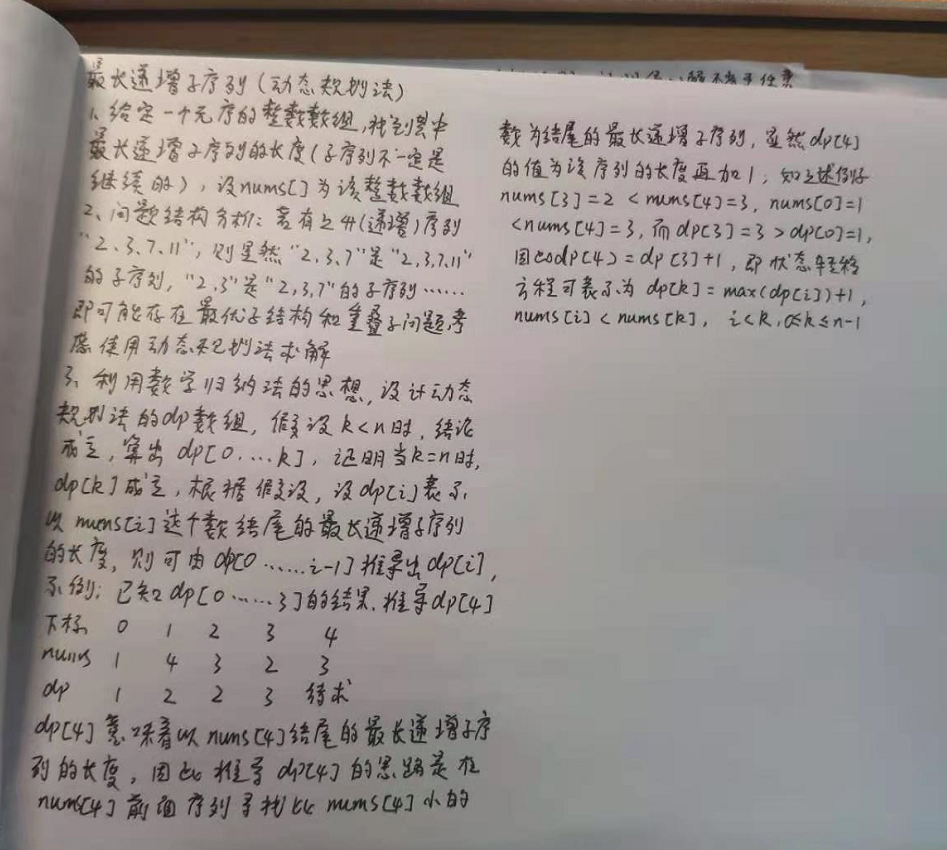 最长递增子序列(动态规划法)
1、给定一个无序的整数数组,找到其中
最长递增子序列的长度(子序列不一定是
继续的),设nums[]为该整数数组
2、问题结构分析:若有上升(递增)序列
"2、3、7、11",则显然"2,3、7"是"2,3,7,11"
的子序列,"2,3"是"2,3,7"的子序列……
即可能存在最优子结构和重叠子问题,考
虑使用动态规划法求解
3、利用数学归纳法的思想,设计动态
规划法的dp数组,假设k<n时,结论
成立,算出dp[0...k],证明当k=n时,
dp[k]成立,根据假设,设dp[i]表示
以nums[i]这个数结尾的最长递增子序列
的长度,则可由dp[0……i-1]推导出dp[i],
示例:已知dp[0……3]的结果,推导dp[4]
下标 0 1 2 3 4
nums 1 4 3 2 3
dp 1 2 2 3 待求
dp[4]意味着以nums[4]结尾的最长递增子序
列的长度,因此推导dp[4]的思路是在
nums[4]前面序列寻找比nums[4]小的
数为结尾的最长递增子序列,显然dp[4]
的值为该序列的长度再加1,如上述例子
nums[3]=2<nums[4]=3,nums[0]=1
<nums[4]=3,而dp[3]=3>dp[0]=1,
因此dp[4]=dp[3]+1,即状态转移
方程可表示为dp[k]=max(dp[i])+1,
nums[i]<nums[k],i<k,0≤k≤n-1